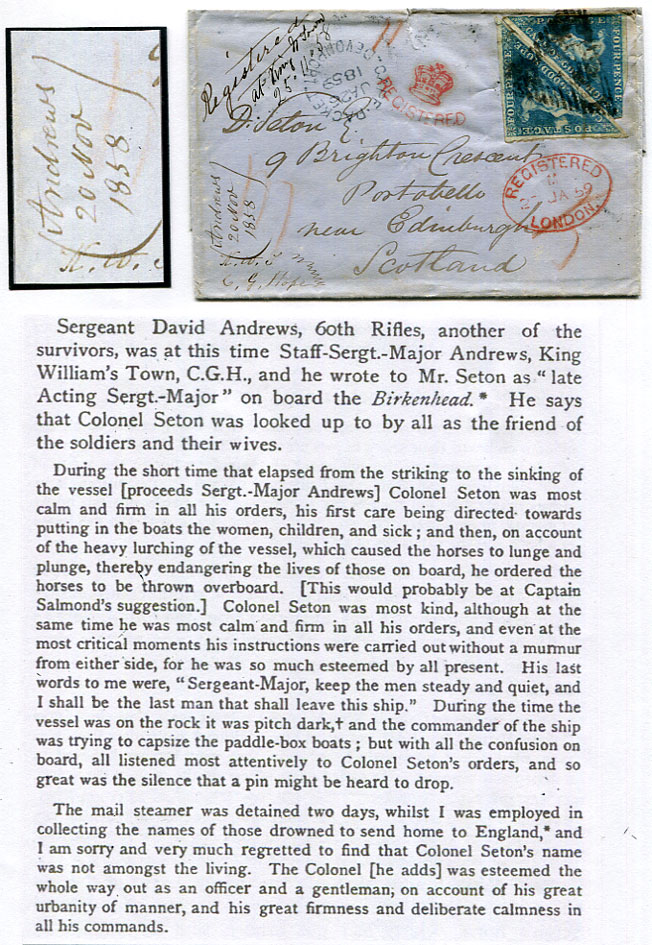 Andrews
20 Nov
1858
K. W.
Registered
at King W Town
25.11.58
DEVONPORT
PACKET
JA 26
1859
REGISTERED
FOUR PENCE
POSTAGE
FOUR PENCE
POSTAGE
D. Seton E.
9 Brighton Crescent
Portobello
near Edinburgh
Scotland
REGISTERED
27 JA 59
LONDON
Andrews
20 Nov
1858
K. W. T
C. G. Hope
Sergeant David Andrews, 60th Rifles, another of the
survivors, was at this time Staff-Sergt.-Major Andrews, King
William's Town, C.G.H., and he wrote to Mr. Seton as “ late
Acting Sergt.-Major ” on board the Birkenhead.* He says
that Colonel Seton was looked up to by all as the friend of
the soldiers and their wives.
During the short time that elapsed from the striking to the sinking of
the vessel [proceeds Sergt.-Major Andrews] Colonel Seton was most
calm and firm in all his orders, his first care being directed towards
putting in the boats the women, children, and sick ; and then, on account
of the heavy lurching of the vessel, which caused the horses to lunge and
plunge, thereby endangering the lives of those on board, he ordered the
horses to be thrown overboard. [This would probably be at Captain
Salmond's suggestion.] Colonel Seton was most kind, although at the
same time he was most calm and firm in all his orders, and even at the
most critical moments his instructions were carried out without a murmur
from either side, for he was so much esteemed by all present. His last
words to me were, “Sergeant-Major, keep the men steady and quiet, and
I shall be the last man that shall leave this ship.” During the time the
vessel was on the rock it was pitch dark,† and the commander of the ship
was trying to capsize the paddle-box boats ; but with all the confusion on
board, all listened most attentively to Colonel Seton's orders, and so
great was the silence that a pin might be heard to drop.
The mail steamer was detained two days, whilst I was employed in
collecting the names of those drowned to send home to England,* and
I am sorry and very much regretted to find that Colonel Seton's name
was not amongst the living. The Colonel [he adds] was esteemed the
whole way out as an officer and a gentleman; on account of his great
urbanity of manner, and his great firmness and deliberate calmness in
all his commands.